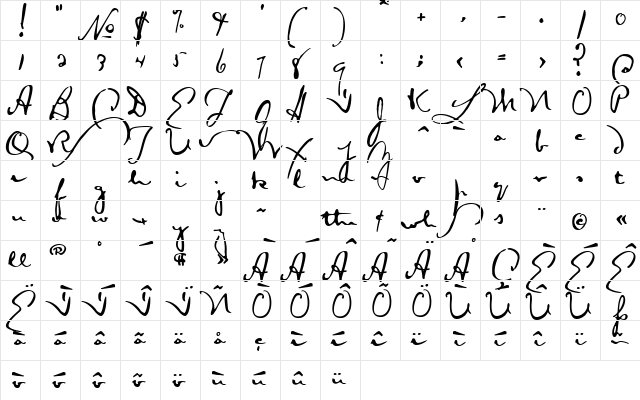 ! " № $ % & ' ( ) * + , - . / 0
1 2 3 4 5 6 7 8 9 : ; ‹ = › ?
A B C D E F G H I J K L M N O P
Q R S T U V W X Y Z ^ a b c
e f g h i j k l o p q r s t
u v w x y ~ the ¢ wh s ¨ © «
ll ® ° ¯ À Á Â Ã Ä Å Ç È É Ê
Ë Ì Í Î Ï Ñ Ò Ó Ô Õ Ö Ù Ú Û Ü ß
à á â ã ä å ç è é ê ë ì í î ï ñ
ò ó ô õ ö ù ú û ü